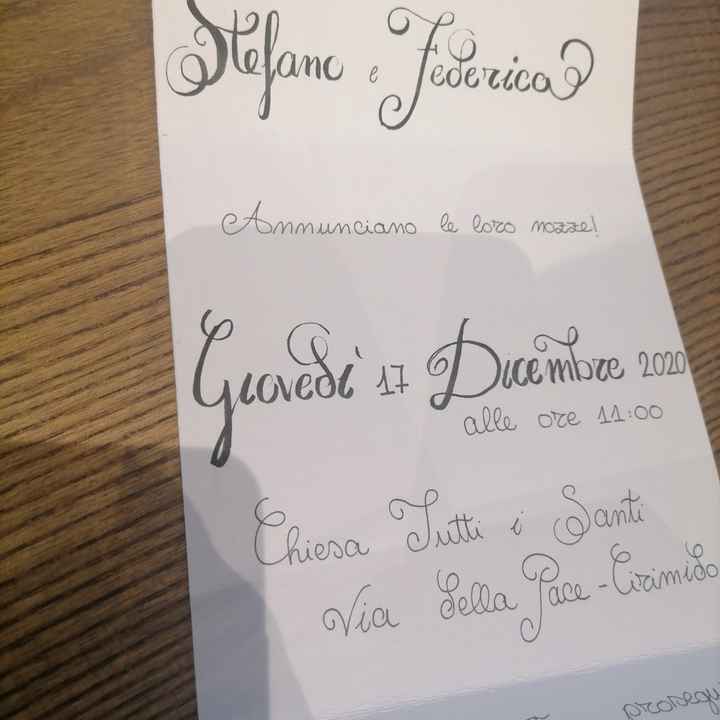 Stefano e Federica
Annunciano le loro nozze!
Giovedì 17 Dicembre 2020
alle ore 11:00
Chiesa Tutti i Santi
Via della Pace - Cirimido